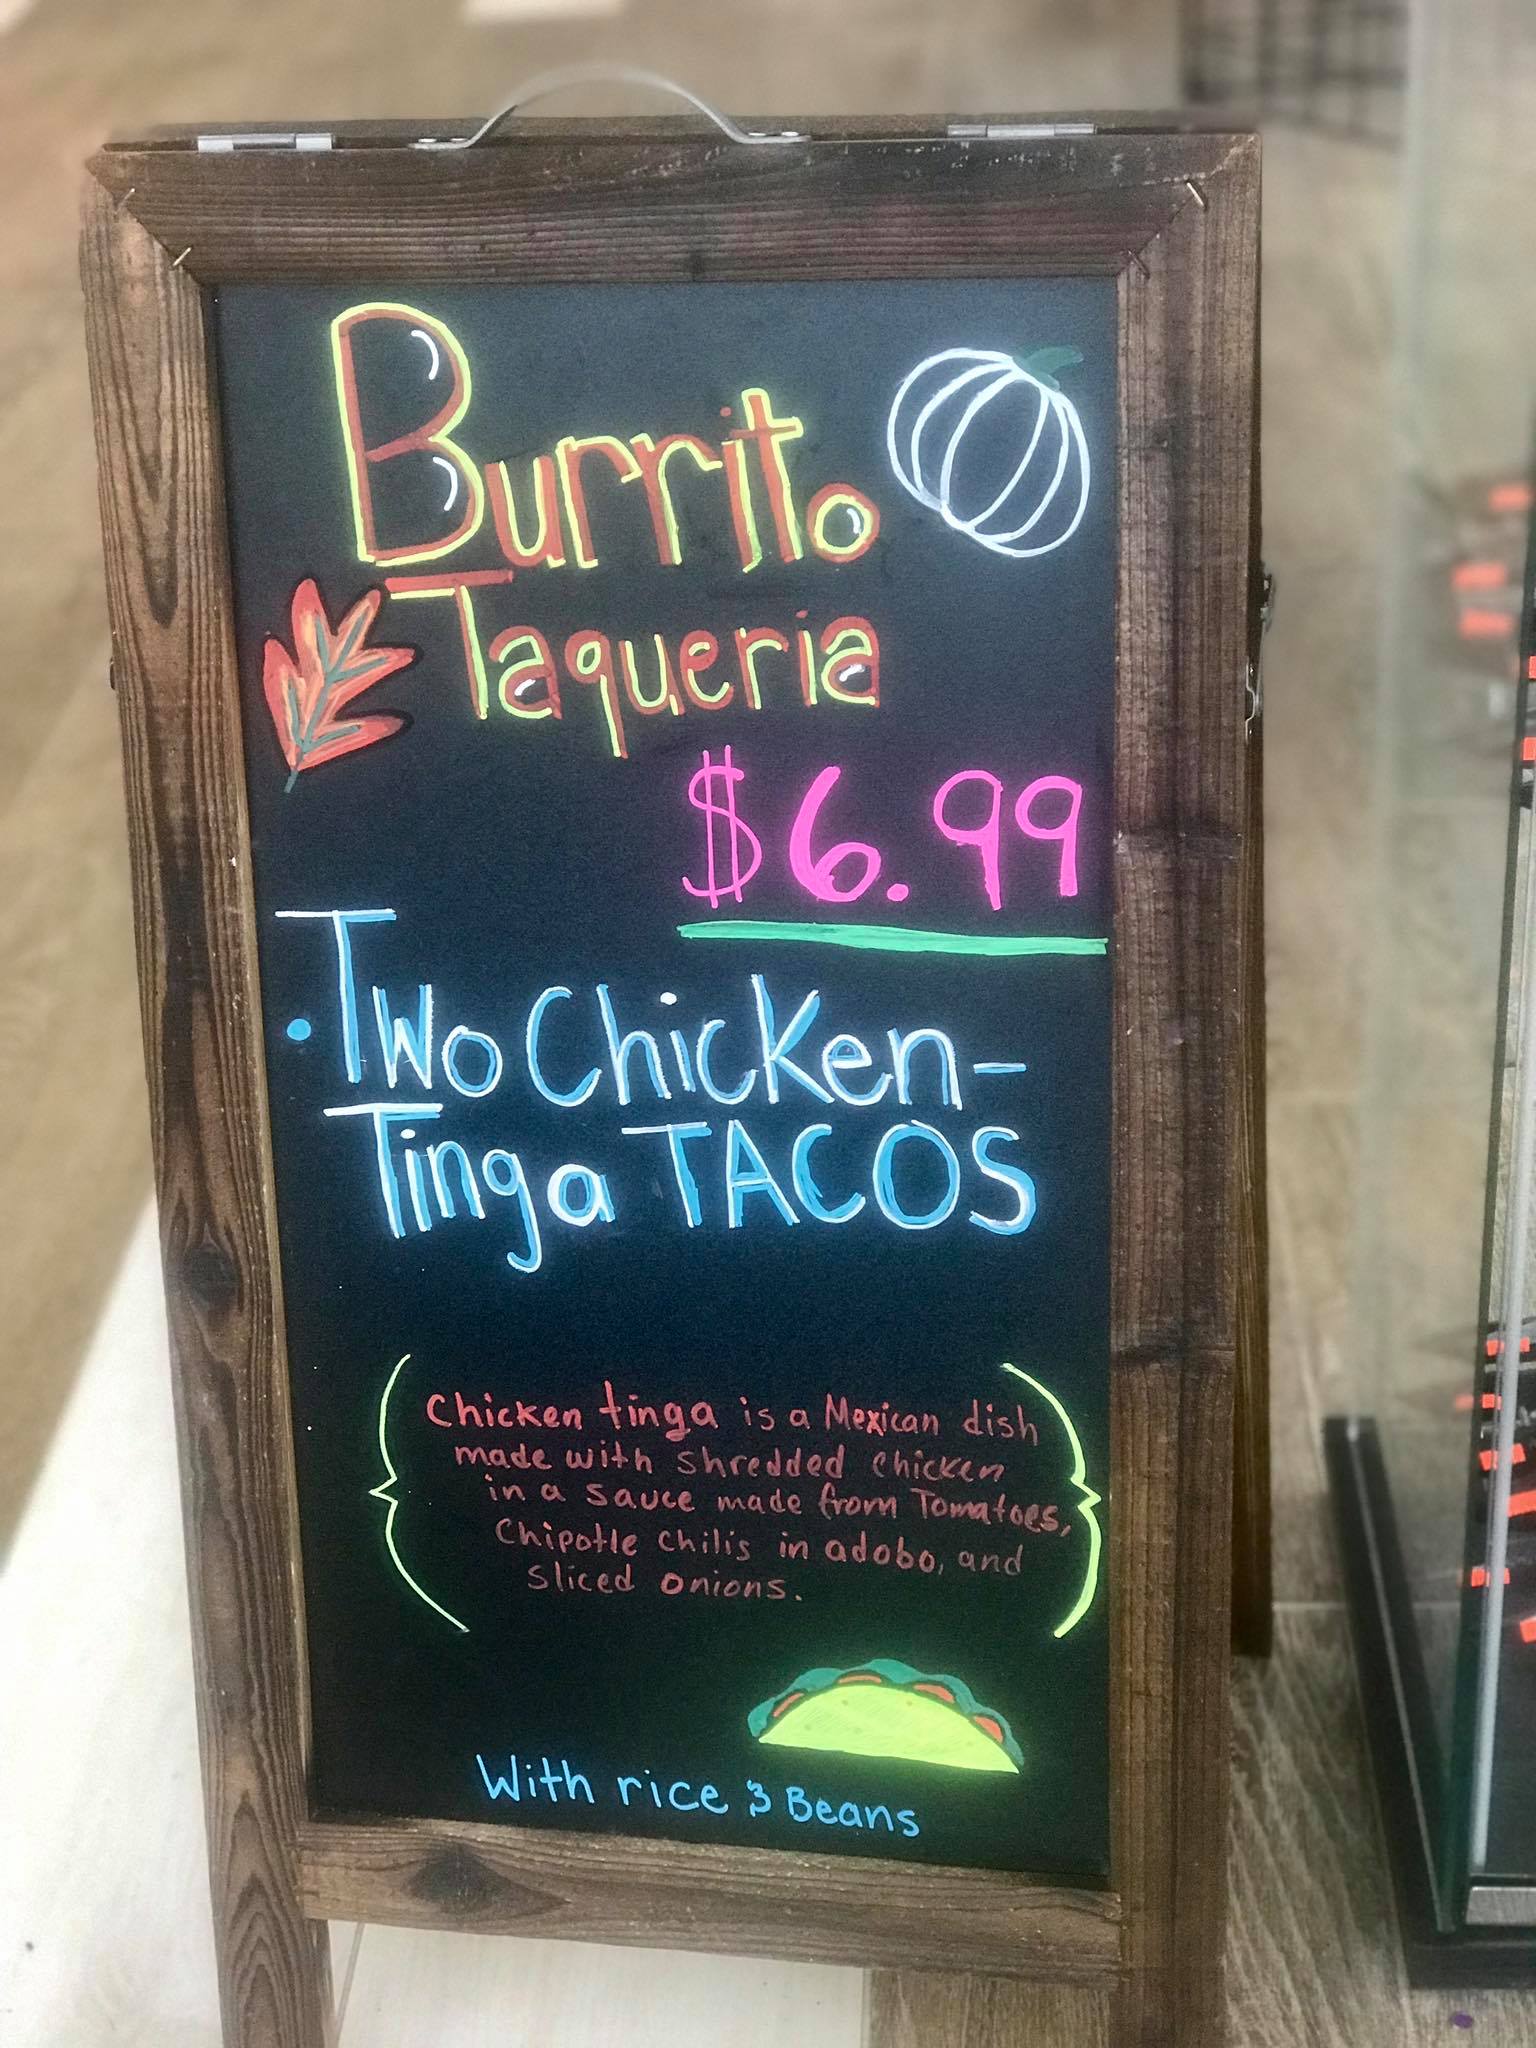 Burrito
Taqueria
$6.99
• Two Chicken-
Tinga TACOS
Chicken tinga is a Mexican dish
made with shredded chicken
in a sauce made from Tomatoes,
Chipotle chilis in adobo, and
sliced onions.
With rice & Beans